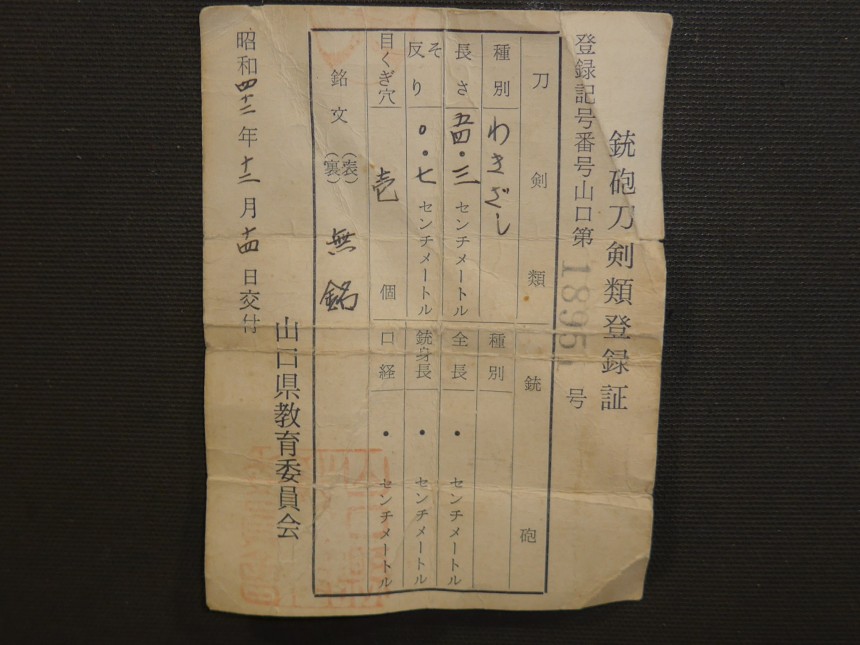 銃砲刀剣類登録証
登録記号番号山口第18951号
刀剣類
種別 わきざし
長さ 五四・三センチメートル
そり 反 〇・七センチメートル
目くぎ穴 壱個
銘文 (表)(裏) 無銘
銃砲
種別
全長 ・ センチメートル
銃身長 ・ センチメートル
口経 ・ センチメートル
昭和四十二年十二月十四日交付
山口県教育委員会